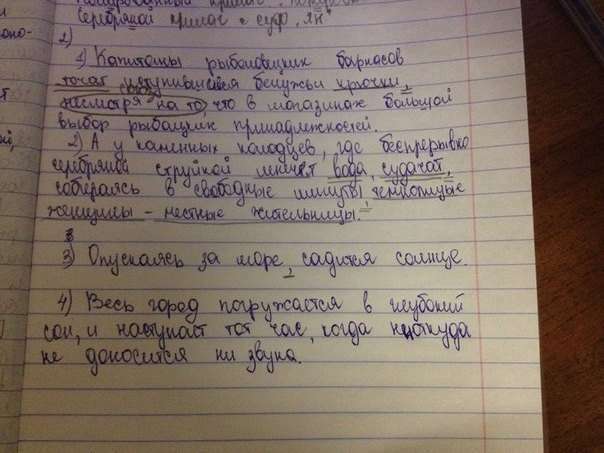 серебряной прилаг. суфф. "ЯН"
2)
1) Капитаны рыболовецких баркасов
точат иступившиеся белужьи крючки,
несмотря на то, что в магазинах большой
выбор рыбацких принадлежностей.
2) А у каменных колодцев, где беспрерывно
серебряной струйкой льет вода, судачат,
собираясь в свободные минуты, темнолицые
женщины – местные жительницы.
3) Опускаясь за море, садится солнце.
4) Весь город погружается в глубокий
сон, и наступает тот час, когда ниоткуда
не доносится ни звука.